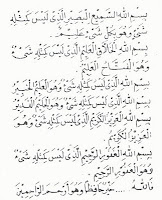 بِسْمِ اللهِ السَّمِيْعِ الْبَصِيْرِ الَّذِيْ لَيْسَ كَمِثْلِهٖ
شَيْءٌ وَهُوَ بِكُلِّ شَيْءٍ عَلِيْمٌ
بِسْمِ اللهِ الْخَلَّاقِ الْعَلِيْمِ الَّذِيْ لَيْسَ كَمِثْلِهٖ شَيْءٌ
وَهُوَ الْفَتَّاحُ الْعَلِيْمُ
بِسْمِ اللهِ الَّذِيْ لَيْسَ كَمِثْلِهٖ شَيْءٌ وَهُوَ الْعَلِيْمُ الْخَبِيْرُ
بِسْمِ اللهِ الَّذِيْ لَيْسَ كَمِثْلِهٖ شَيْءٌ وَهُوَ
الْعَزِيْزُ الْكَرِيْمُ
بِسْمِ اللهِ الْغَفُوْرِ الرَّحِيْمِ الَّذِيْ لَيْسَ كَمِثْلِهٖ شَيْءٌ وَهُوَ
الْعَزِيْزُ الْغَفُوْرُ الرَّحِيْمُ
فَاللهُ .... خَيْرٌ حَافِظًا وَهُوَ اَرْحَمُ الرَّاحِمِيْنَ